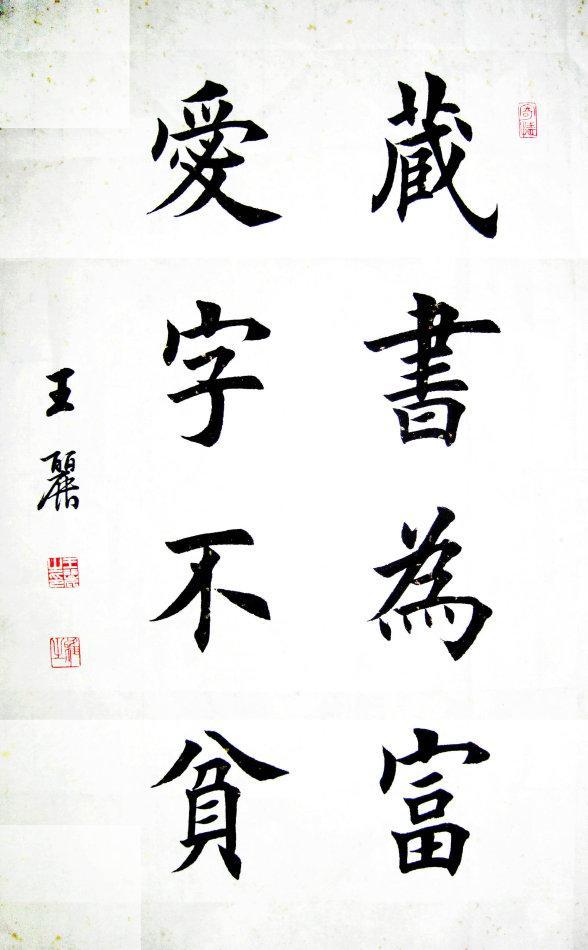 蔵書為富
愛字不貧
王麗